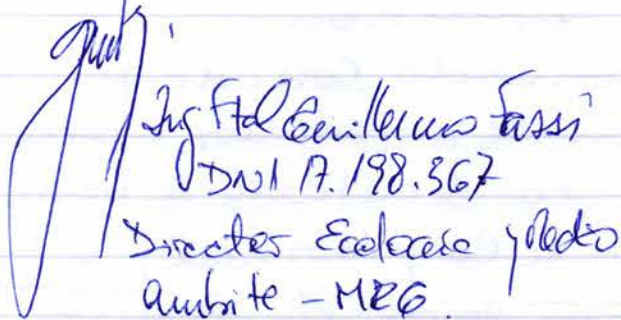 Ing Ftal Guillermo Fassi
DNI 17.198.367
Director Ecología y Medio
Ambite - MRG.